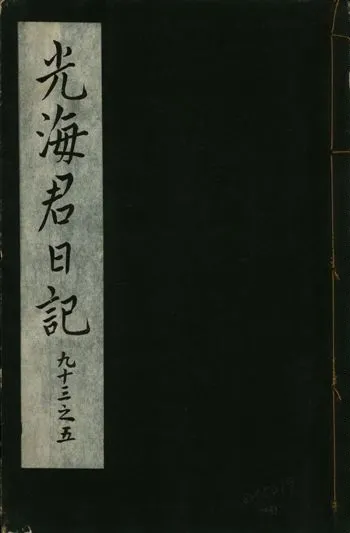 光海君日記
九十三之五